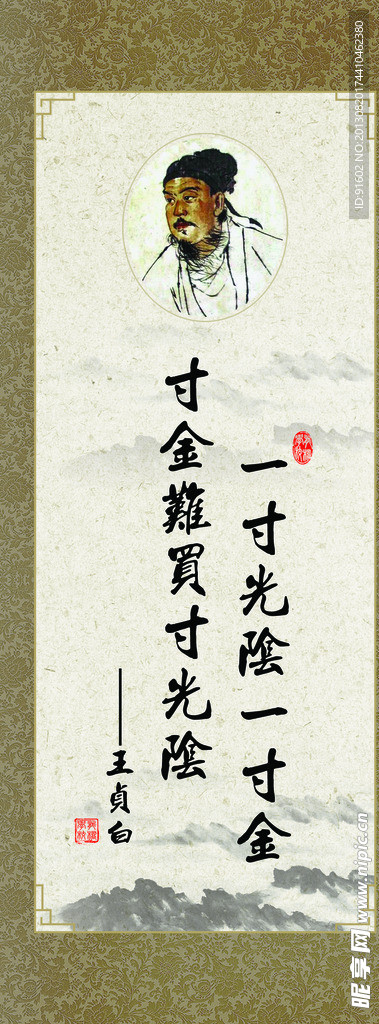 一寸光陰一寸金
寸金難買寸光陰
——王貞白
ID:91602 NO:20130820174410462380
昵享网 www.nipic.cn